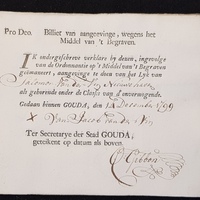 Pro Deo. Billiet van aangeevinge, wegens het
Middel van 't Begraven.
IK ondergeschreve verklare by deezen, ingevolge
van de Ordonnantie op 't Middel van 't Begraven
geëmaneert, aangevinge te doen van het Lyk van
als gehorende onder de Classis van d'onvermogende.
Gedaan binnen GOUDA, den 12 December 1799
X Jacob van der
Ter Secretarye der Stad GOUDA;
geteekent op datum als boven.